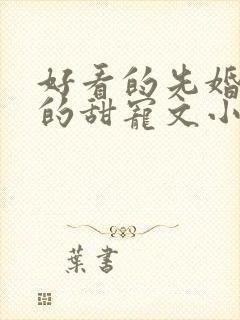 好看的先婚
的甜宠文小
葉書